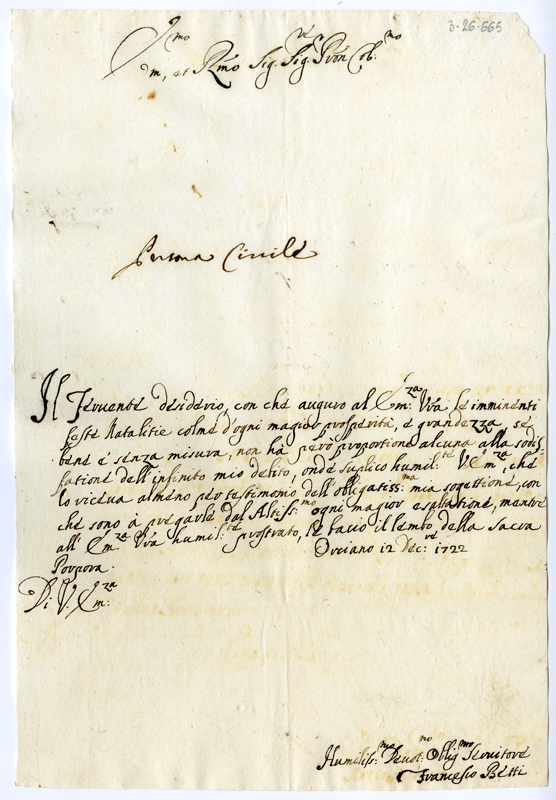 3-26-665
Em.mo, et Rmo Sig.re Sig.re Pron Col.mo
Persona Civile
Il Feruente desiderio, con che auguro al Em.za Vra le imminenti
feste Natalitie colme d'ogni magior prosperità, e grandezza, se
bene è senza misura, non hà però proportione alcuna alla sodis-
fatione dell'infinito mio debito, onde suplico humil.te V. Em.za, che
lo riceua almeno per testimonio dell'obligatiss.ma mia sogettione, con
che sono à pregarle dal Altiss.mo ogni magior esaltatione, mentre
all' Em.za Vra humil.te prostrato, le bacio il lembo della Sacra
Porpora.
Orciano 12 Dec.re 1722
Di V. Em.za
Humiliss.mo Deuot.mo Oblig.mo Seruitore
Francesco Betti